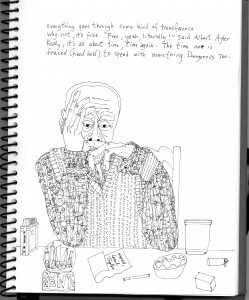 everything goes through some kind of transference.
Why not, it's free. "Free, yeah, literally!" - said Albert Ayler
Really, it's all about time, time again. The time one is
trained (hand held) to spend with everything. Dangerous Too.